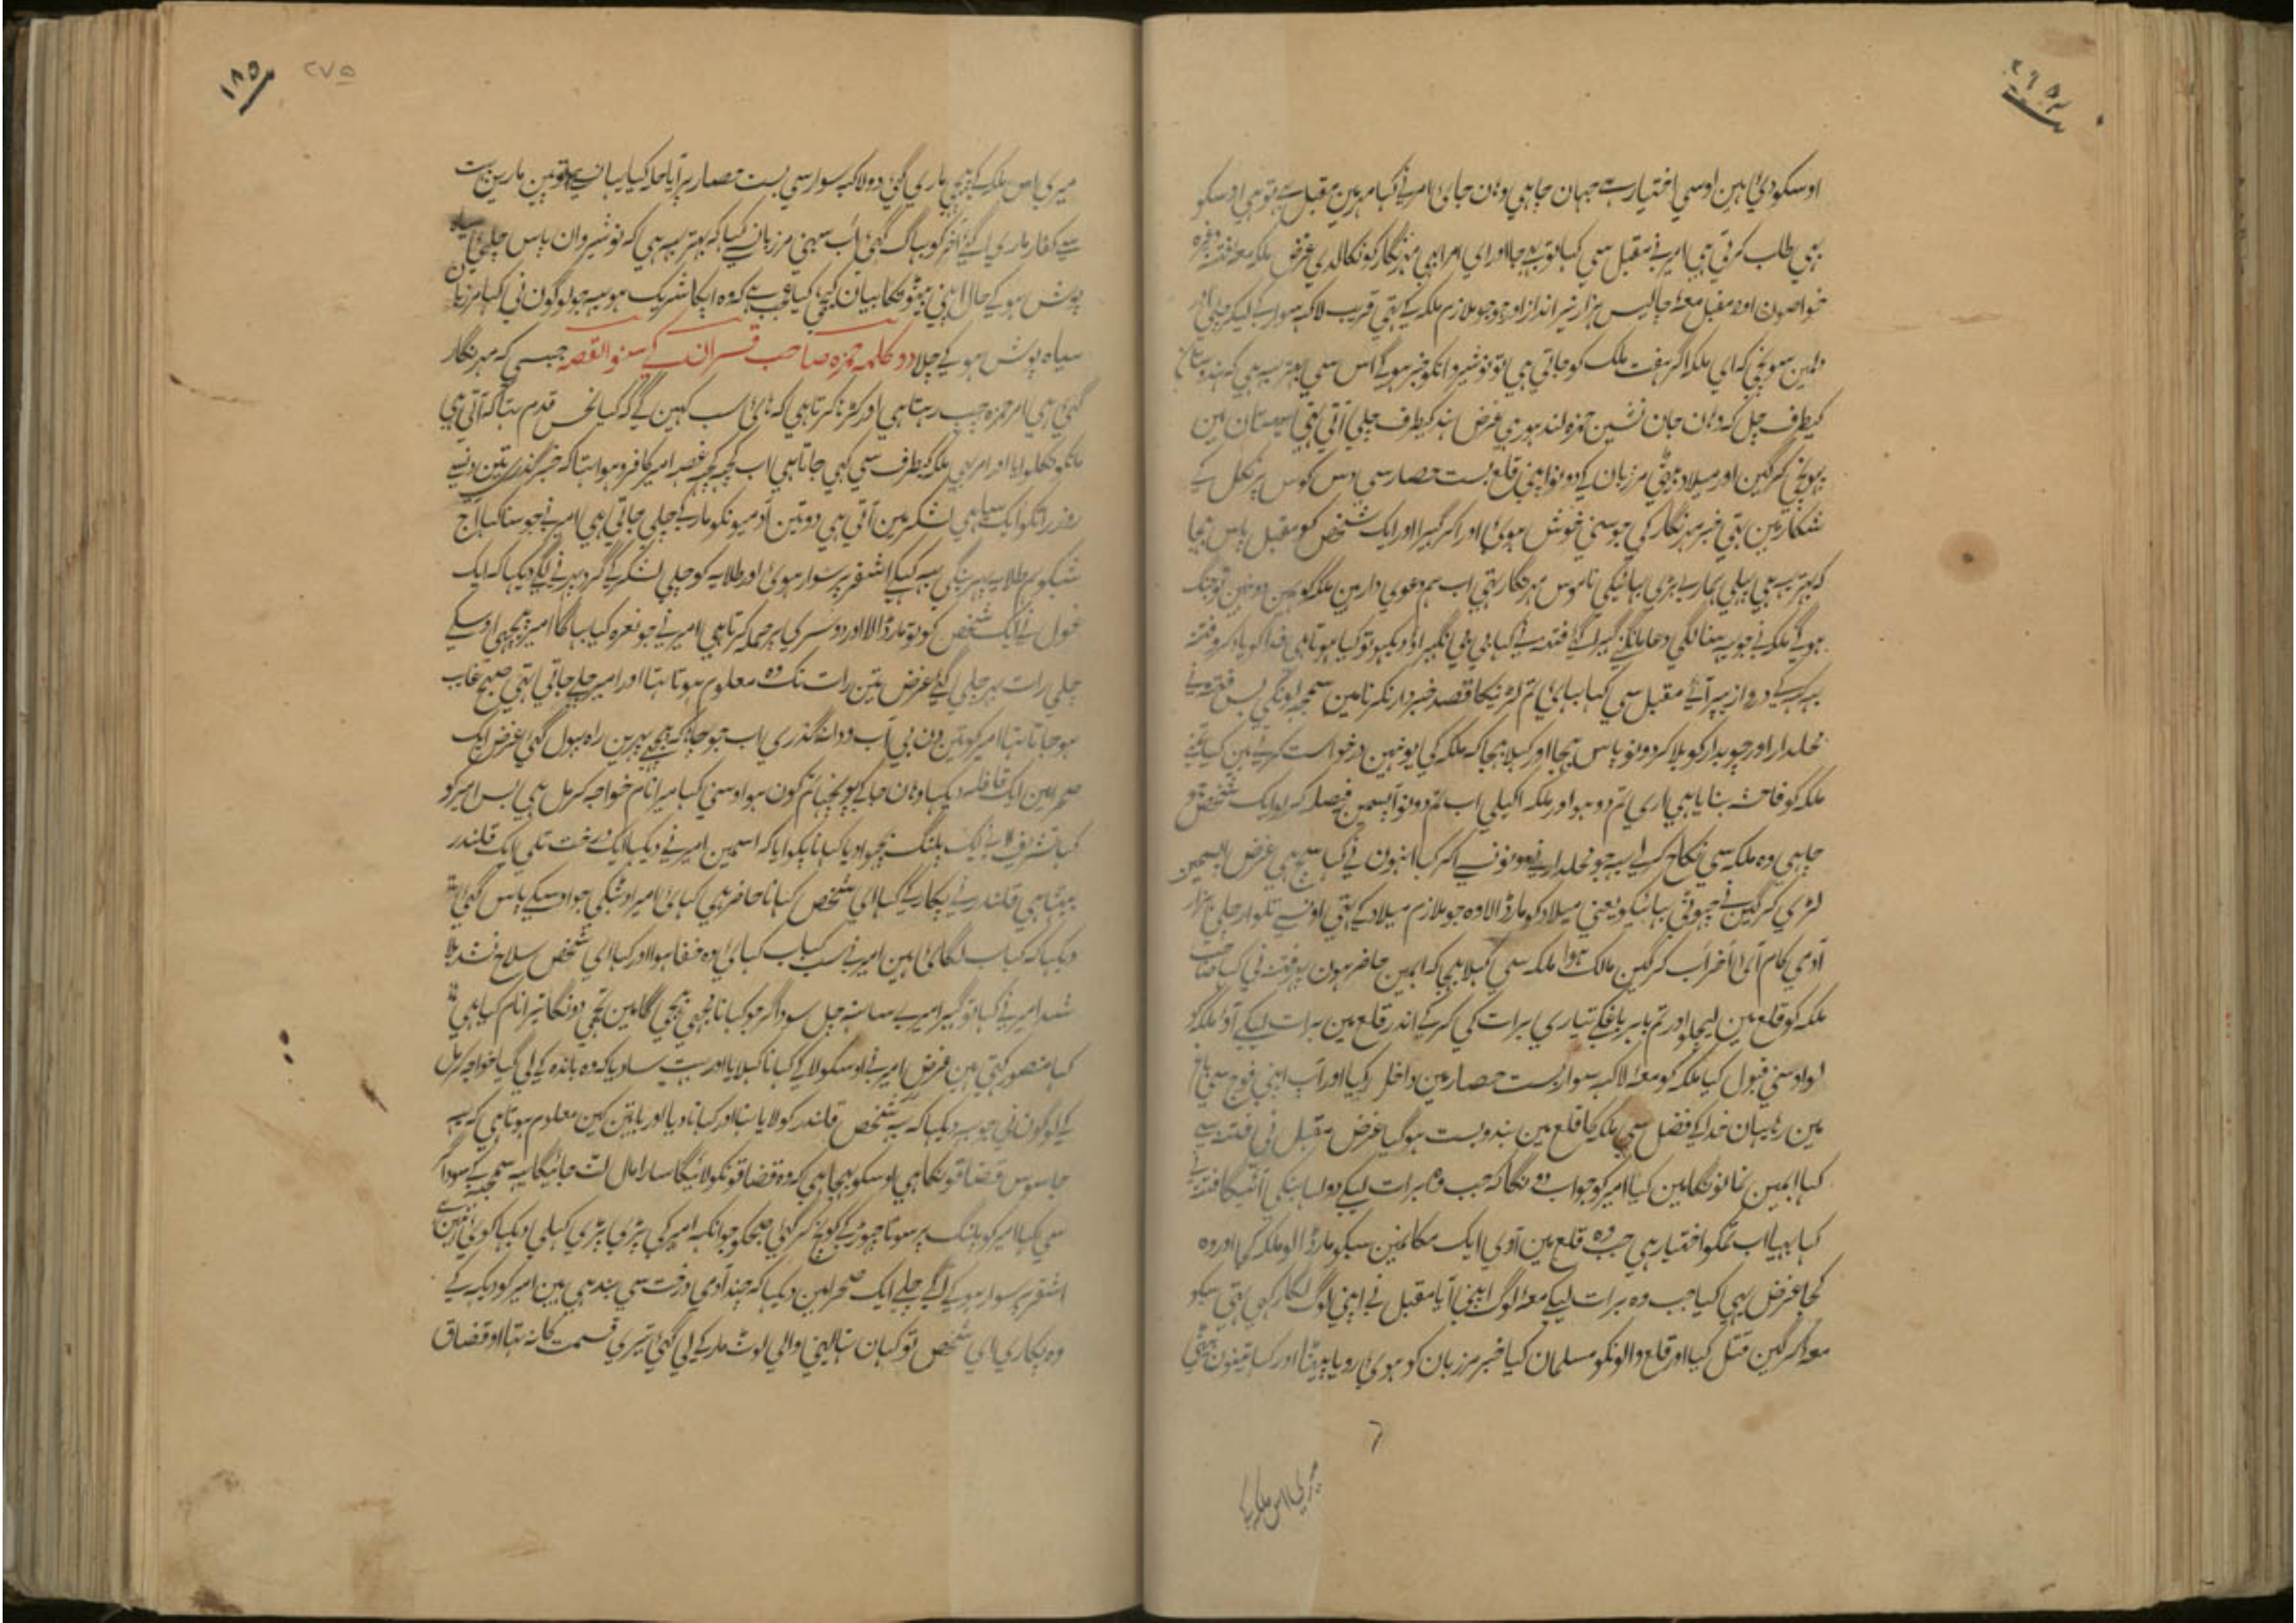 اوسکو دی ہین اوسی اختیار ہے جہان چاہی وہان جای امیرنے کہا مہرین مقبل ہے تو ہی اوسکو
ہی طلب کرتی ہی امیرنے مقبل سی کہا تو بہی جا اور ای امرا ہی مہرنگار کو نکالدی غرض ملکہ معہ فتنہ وغیرہ
خواصون اور مقبل معہ چالیس ہزار تیرانداز اور جو جو ملازم ملکہ کے تہی قریب لاکہہ سوار کے لیکر چلی اور
دلمین سوچی کہ ای ملکہ اگر ہفت ملک کو جاتی ہی تو نوشیروانکو خبر ہوگی اس سی بہتر یہ ہی کہ ہندوستان
کیطرف چل کہ وہان جان نشین حمزہ لندہور ہی غرض ہند کیطرف چلی آتی تہی سیستان مین
پہونچی کرگین اور میلاد بیٹی مرزبان کے دونو اپنی قلع بست حصار سی دس کوس پر نکل کے
شکار مین تہی خبر مہرنگار کی جو سنی خوش ہوی اور اکر گہیرا اور ایک شخص کو مقبل پاس بہیجا
کہ بہتر یہ ہی پہلی ہمارے بڑی بہائیکی ناموس مہرنگار تہی اب ہم دعوی دار ہین ملکہ کو ہمین دو نہین تو جنگ
ہوگی ملکہ نے جو یہ سنا لگی دعا مانگنی گہیرا کے فتنہ نے کہا بی بی نگہبراو دیکہو تو کیا ہوتا ہی خدا کو یاد کرو فتنہ
یہ کہہ کے دروازیپر آئے مقبل سی کہا بہائی تم لڑنیکا قصد خبردار نکرنا مین سمجہہ لونگی پس فتنہ نے
محلدار اور چوبدار کو بلا کر دونو پاس بہیجا اور کہلا بہیجا کہ ملکہ کی یونہین درخواست کرتے ہین کیا تمنے
ملکہ کو فاحشہ بنایا ہی اری تم دو ہو اور ملکہ اکیلی اب تم دونو آپسمین فیصلہ کر لو ایک شخص جو
چاہی وہ ملکہ سی نکاح کرے یہ جو محلدار نے دونو سے اکر کہا انہون نے کہا سچ ہی غرض اپسمین
لڑی کرگین نے چہوٹی بہائیکو یعنی میلاد کو مار ڈالا وہ جو ملازم میلاد کے تہی اونسے تلوار چلی ہزار
آدمی کام آئے آخر اب کرگین مالک ہوا ملکہ سی کہلا بہیجا کہ ابمین حاضر ہون پہر فتنہ نی کہا صاحب
ملکہ کو قلع مین لیجاو اور تم باہر باغکے تیاری برات کی کر کے اندر قلع مین برات لیکے آو ملکہ کو
لو اوسنی قبول کیا ملکہ کو معہ لاکہہ سوار بست حصار مین داخل کیا اور آپ اپنی فوج سی باغ
مین رہا یہان خدا کے فضل سی ملکہ کا قلع مین بندوبست ہوگیا غرض مقبل نی فتنہ سے
کہا ابمین نمانونگا مین کیا امیر کو جواب دونگا کہ جب وہ برات لیکے دولہا بنکی آئیگا فتنہ نے
کہا بہیا اب تمکو اختیار ہی جب وہ قلع مین آوی ایک مکانمین سبکو مار ڈالو ملکہ کجا اور وہ
کجا غرض یہی کیا جب وہ برات لیکے معہ لوگ اپنی آیا مقبل نے اپنی لوگ لگا رکہی تہی سبکو
معہ کرگین قتل کیا اور قلع والونکو مسلمان کیا خبر مرزبان کو ہوی رویا پیٹا اور کہا تینون بیٹی
میری اس ملکہ کے
میری اس ملکہ کے پیچہی ماری گئی دو لاکہہ سوار سی بست حصار پر آیا حملہ کیا یہان سے توپین مارین بہت
سے کفار ماری گئے آخر کو بہاگ گئی اب سبہنی مرزبان سے کہا کہ بہتر یہ ہی کہ نوشیروان پاس چلئے سیاہ
پوش ہو کے حال اپنی بیٹونکا بیان کیجی کیا عجب ہے کہ وہ اپکا شریک ہو یہ جو لوگون نی کہا مرزبان
سیاہ پوش ہو کے چلا دو کلمہ حمزہ صاحب قران کے سنو القصہ جبسی کہ مہرنگار
گئی ہی امیر حمزہ چپ رہتا ہی اور کڑہا کرتا ہی کہ ہای سب کہین گے کہ کیا نحس قدم تہا کہ آتی ہی
مانکو نکلوایا اور امیر بہی ملکہ کیطرف سی کہی جاتا ہی اب کچہہ کچہہ غصہ امیر کا فرو ہوا تہا کہ خبر گذری تین دنسے
روز راتکو ایک سیاہی لشکر مین آتی ہی دو تین آدمیونکو مار کے چلی جاتی ہی امیر نے جو سنا کہا آج
شبکو ہم طلایہ پہرینگی یہ کہکے اشقر پر سوار ہوی اور طلایہ کو چلی لشکر کے گرد پہرنے لگے دیکہا کہ ایک
غول نے ایک شخص کو تو مار ڈالا اور دوسری پر حملہ کرتا ہی امیر نے جو نعرہ کیا بہاگا امیر پیچہی اوسکے
چلی رات بہر چلی گئے غرض تین رات تک وہ معلوم ہوتا تہا اور امیر چلے جاتی تہی صبح غایب
ہو جاتا تہا امیر کو تین دن بی آب و دانہ گذری اب جو چاہا کہ پہرین راہ بہول گئی غرض ایک
صحرا مین ایک قافلہ دیکہا وہان جا کے پوچہا تم کون ہو اوسنی کہا میرا نام خواجہ کرمل ہی پس امیر کو
کہا تشریف لایے ایک پلنگ بچہوا دیا کہانا پکوایا کہ اسمین امیر نے دیکہا ایک درخت تلی ایک قلندر
بیٹہا ہی قلندر نے پکار کے کہا ای شخص کہانا حاضر ہی کہا ئے امیر اوٹہکی جو اوسکے پاس گئی
دیکہا کہ کباب لگائی ہین امیر نے سب کباب کہائی وہ خفا ہوا اور کہا ای شخص سلاح نشد بلا
شد امیر نے کہا تو گہبرا میرے ساتہہ چل سوداگر جو کہانا مجہی بہیجی گا مین تجہی دونگا تیرا نام کیا ہی
کہا منصور کہتی ہین غرض امیر نے اوسکو لا کے کہانا کہلایا اور بہت سا دیا کہ وہ باندہ کے لی گیا خواجہ کرمل
کے لوگون نی جو یہ دیکہا کہ یہ شخص قلندر کو لایا تہا اور کہانا دیا اور باتین کین معلوم ہوتا ہی کہ یہ
جاسوس قضاقونکا ہی اوسکو بہیجا ہی کہ وہ قضاقونکو لائیگا سارا مال لٹ جائیگا یہ سمجہہ کے سوداگر
سی کہا امیر کو پلنگ پر سوتا چہوڑ کے کوچ کر گئی صبحکو جو آنکہہ امیر کی پڑی پڑی کہلی دیکہا کوئی نہین
اشقر پر سوار ہو کے آگے چلے ایک صحرا مین دیکہا کہ چند آدمی درخت سی بندہی ہین امیر کو دیکہہ کے
وہ پکاری ای شخص تو کہان تہا لیجئی والی لوٹ مار کے لی گئی تیری قسمت کا نہ تہا او قضاق
۱۸۵
۲۷۵